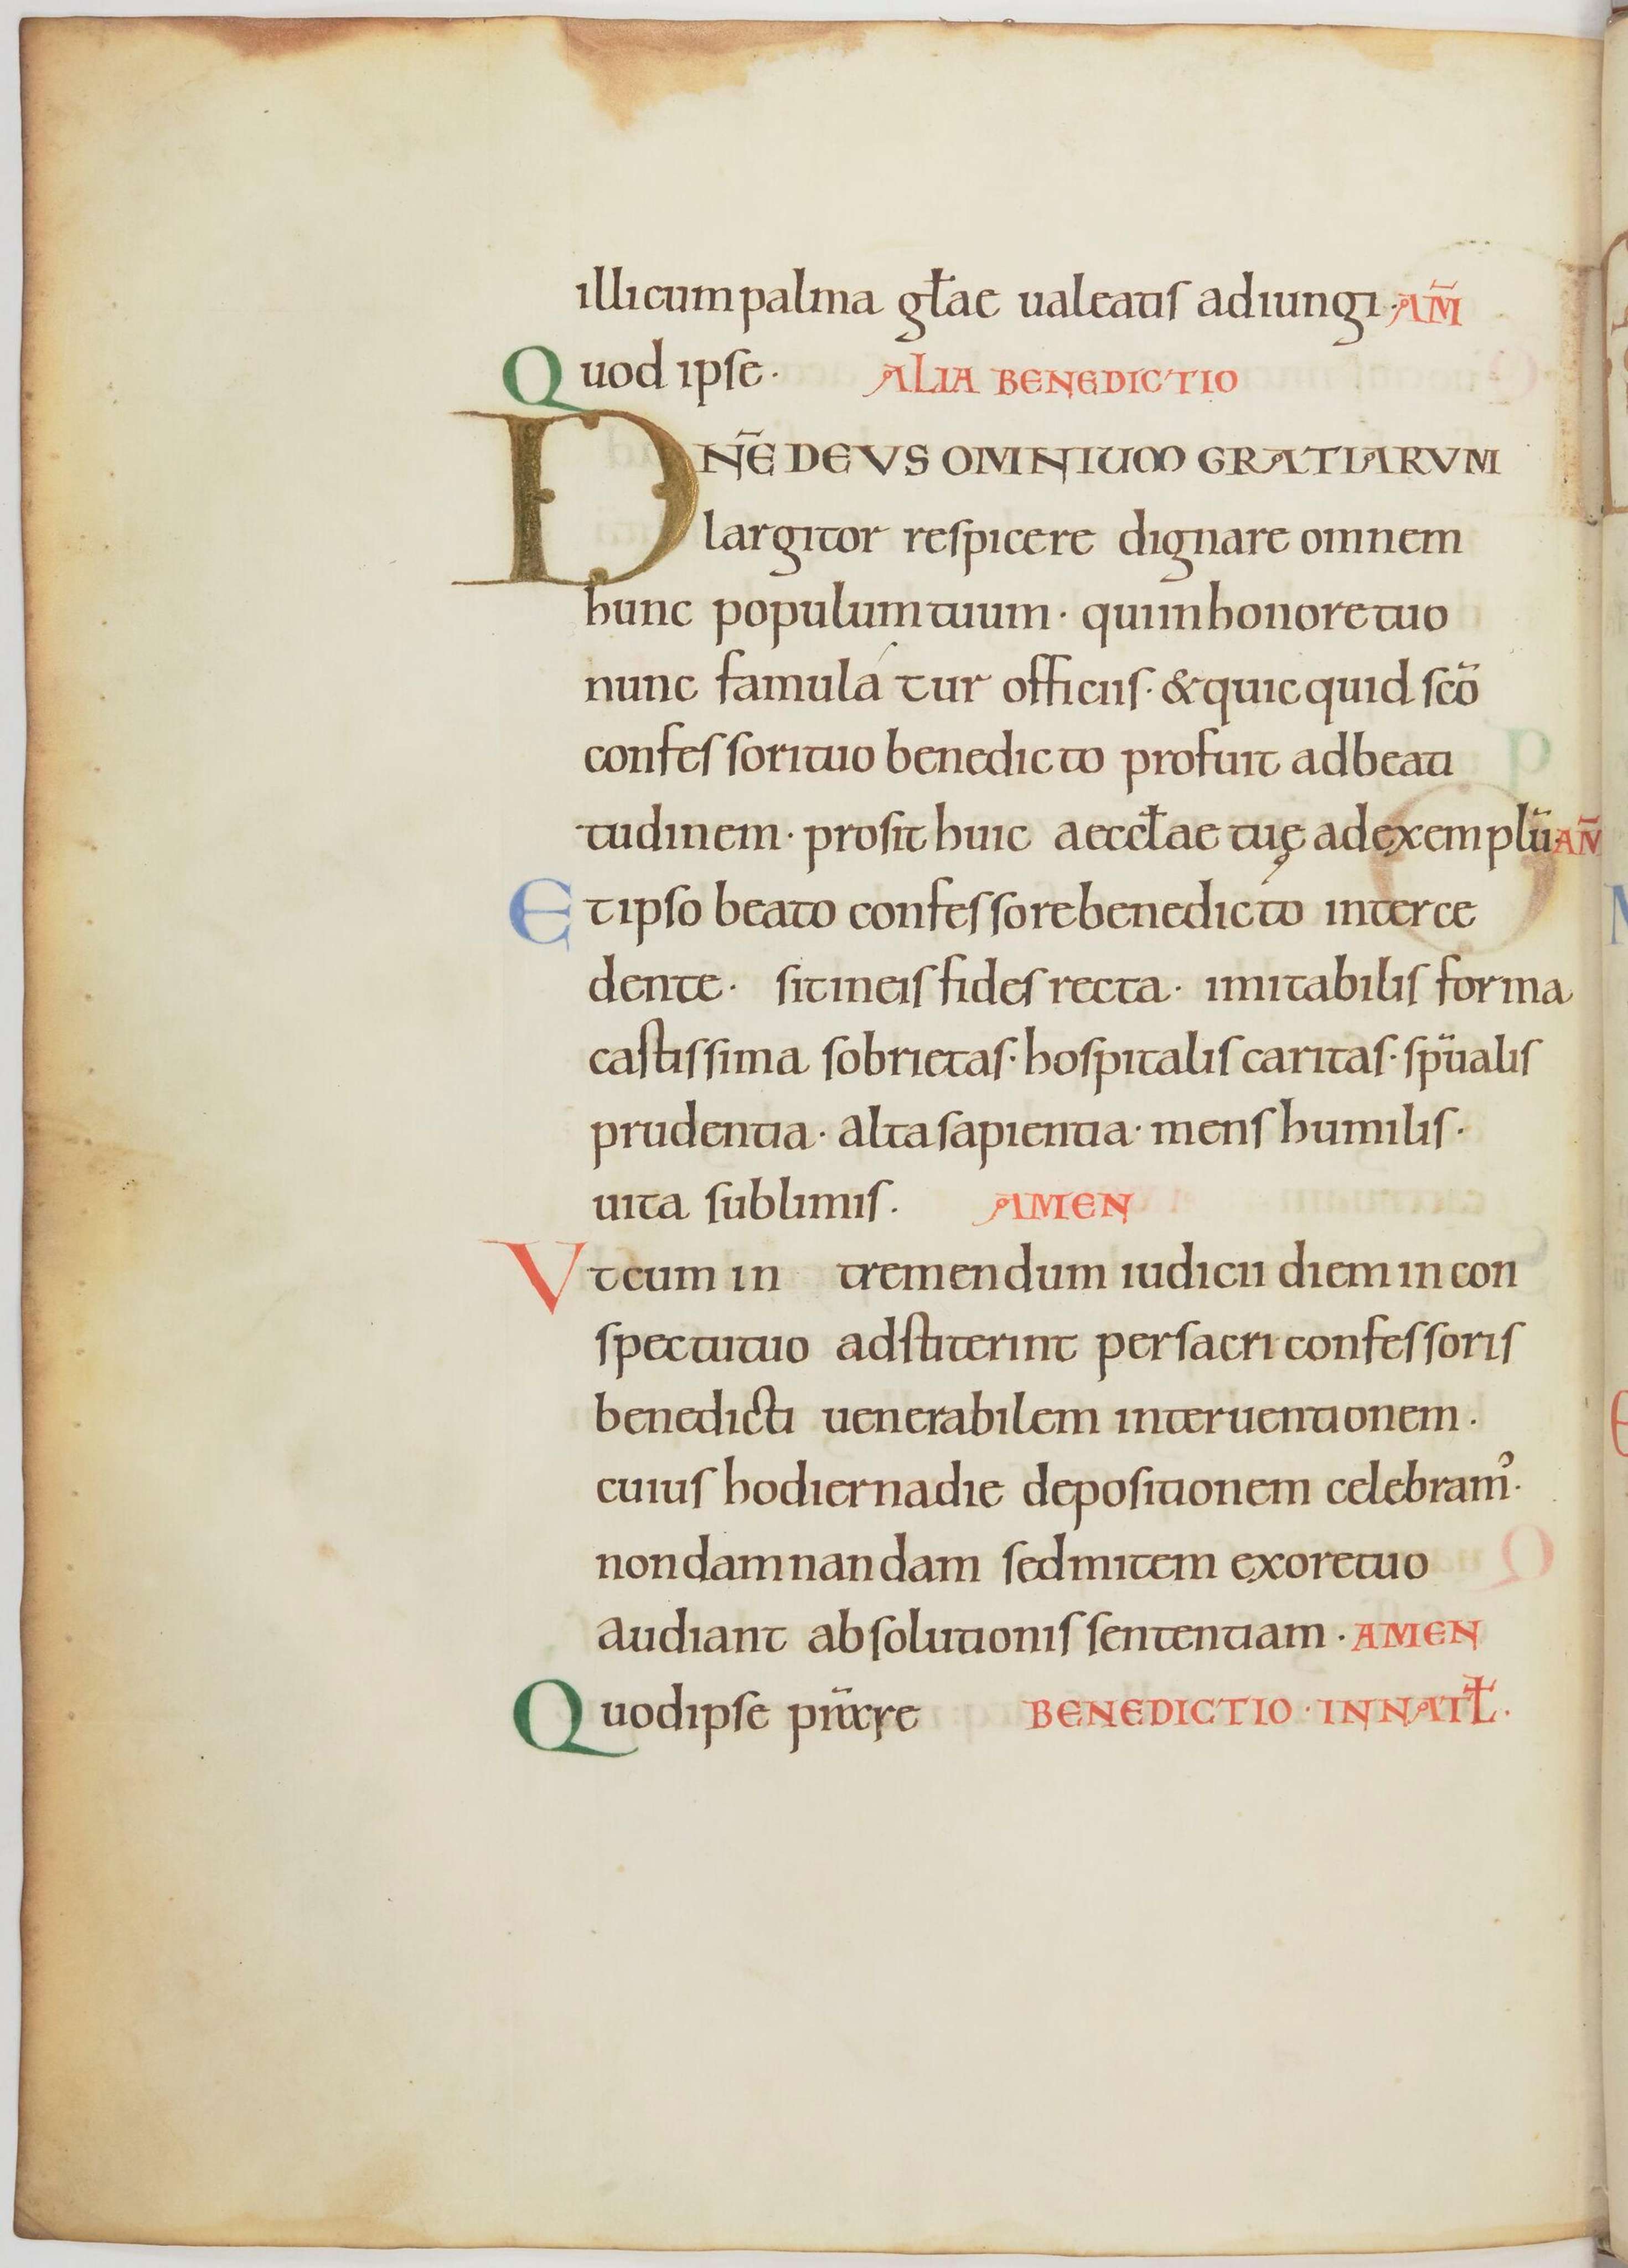 illi cum palma gƚae ualeatis adiungi · AM̄
Quod ipse · ALIA BENEDICTIO
DN̄E DEVS OMNIUM GRATIARVM
largitor respicere dignare omnem
hunc populum tuum · qui in honore tuo
nunc famulatur officiis · & quicquid sc̄o
confessori tuo benedicto profuit ad beati
tudinem · prosit huic aeccƚae tuę ad exemplū · AM̄
Et ipso beato confessore benedicto interce
dente · sit in eis fides recta · imitabilis forma
castissima sobrietas · hospitalis caritas · sp̄ualis
prudentia · alta sapientia · mens humilis ·
uita sublimis · AMEN
Vt cum in tremendum iudicii diem in con
spectu tuo adstiterint per sacri confessoris
benedicti uenerabilem interuentionem ·
cuius hodierna die depositionem celebram᾽ ·
non damnandam sed mitem ex ore tuo
audiant absolutionis sententiam · AMEN
Quod ipse BENEDICTIO · IN NATƚ ·